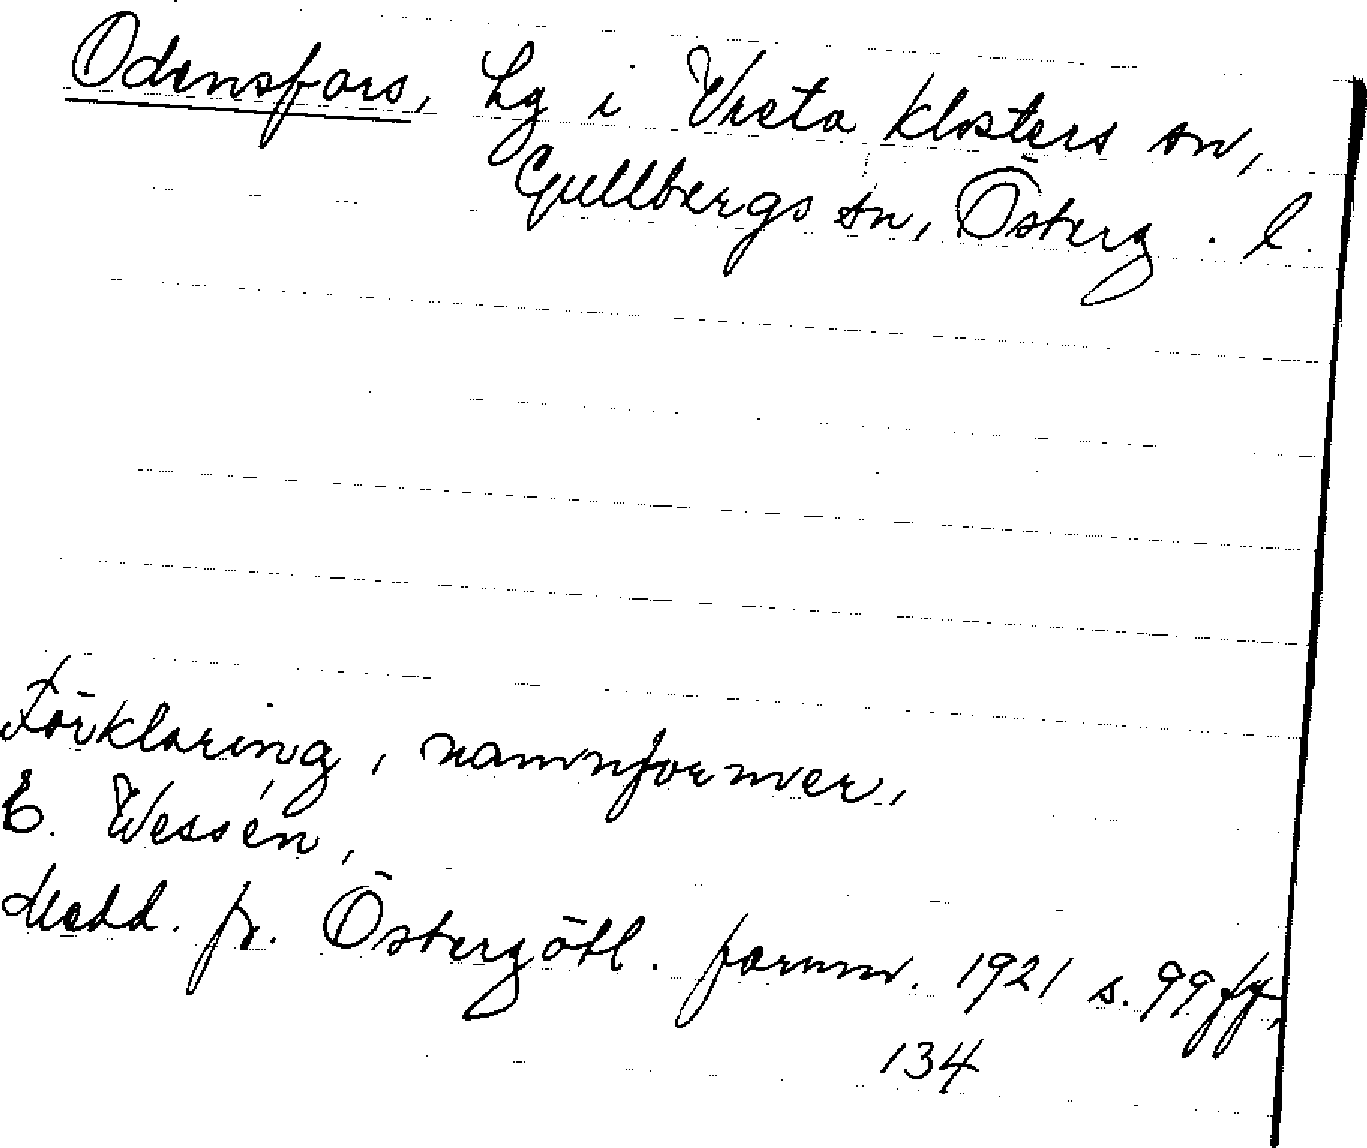 Odensfors, Lg i Vreta klosters sn,
Gullbergs sn, Österg. l.
Förklaring, namnformer,
E. Wessén,
Medd. fr. Östergötl. fornm. 1921 s. 99 ff,
134